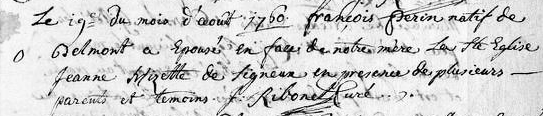 Le 19e du mois d'août 1760 françois perin natif de
Belmont a Epousé en face de notre mère La Ste Eglise
Jeanne de signeux en presence de plusieurs
parents et temoins f. Ribonet Curé